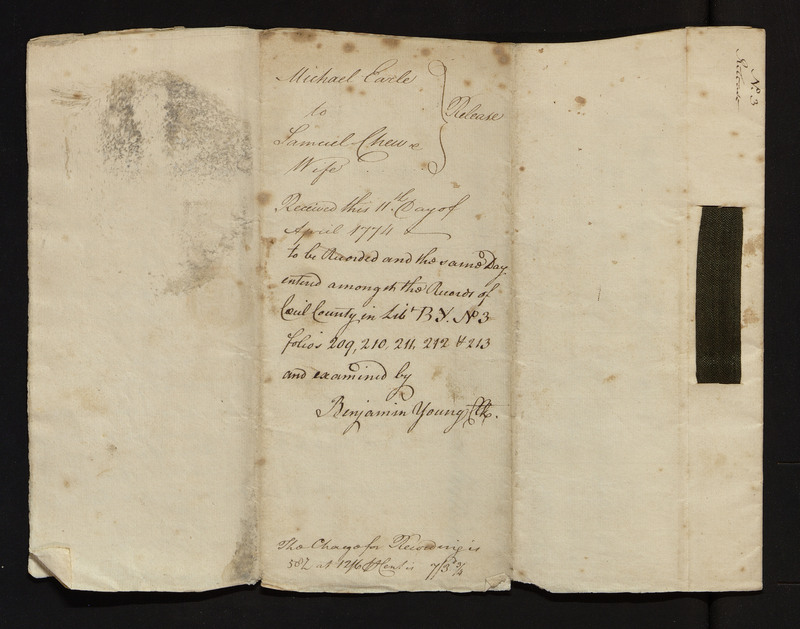 Michael Earle
to
Samuel Chew &
Wife
} Release
Received this 11th. Day of
April 1774
to be Recorded and the same Day
enterd amongst the Records of
Cecil County in Libr BY. No 3
folio's 209, 210, 211, 212 & 213
and examined by
Benjamin Young Clk.
The Charge for Recording is
at 12/6 Cent is 7/3 3/4
No. 3